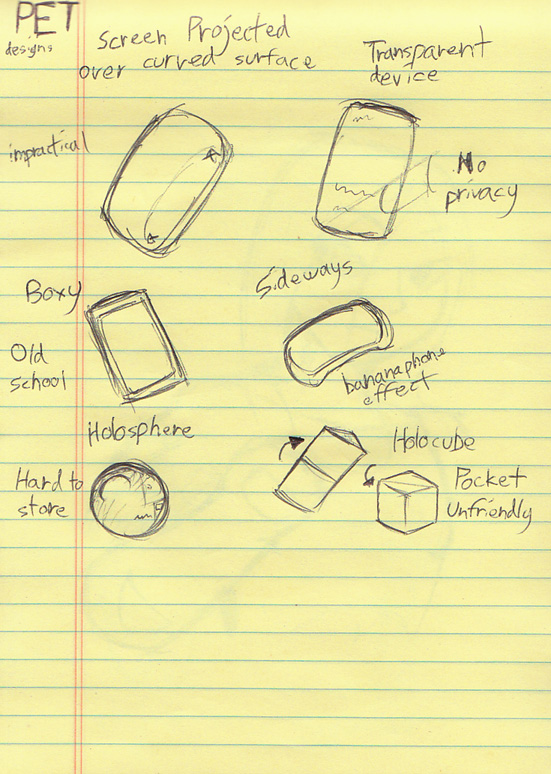 PET
designs
Screen Projected
over curved surface
Transparent
device
impractical
No
privacy
Boxy
Old
school
Sideways
bananaphone
effect
Holosphere
Hard to
store
Holocube
Pocket
Unfriendly